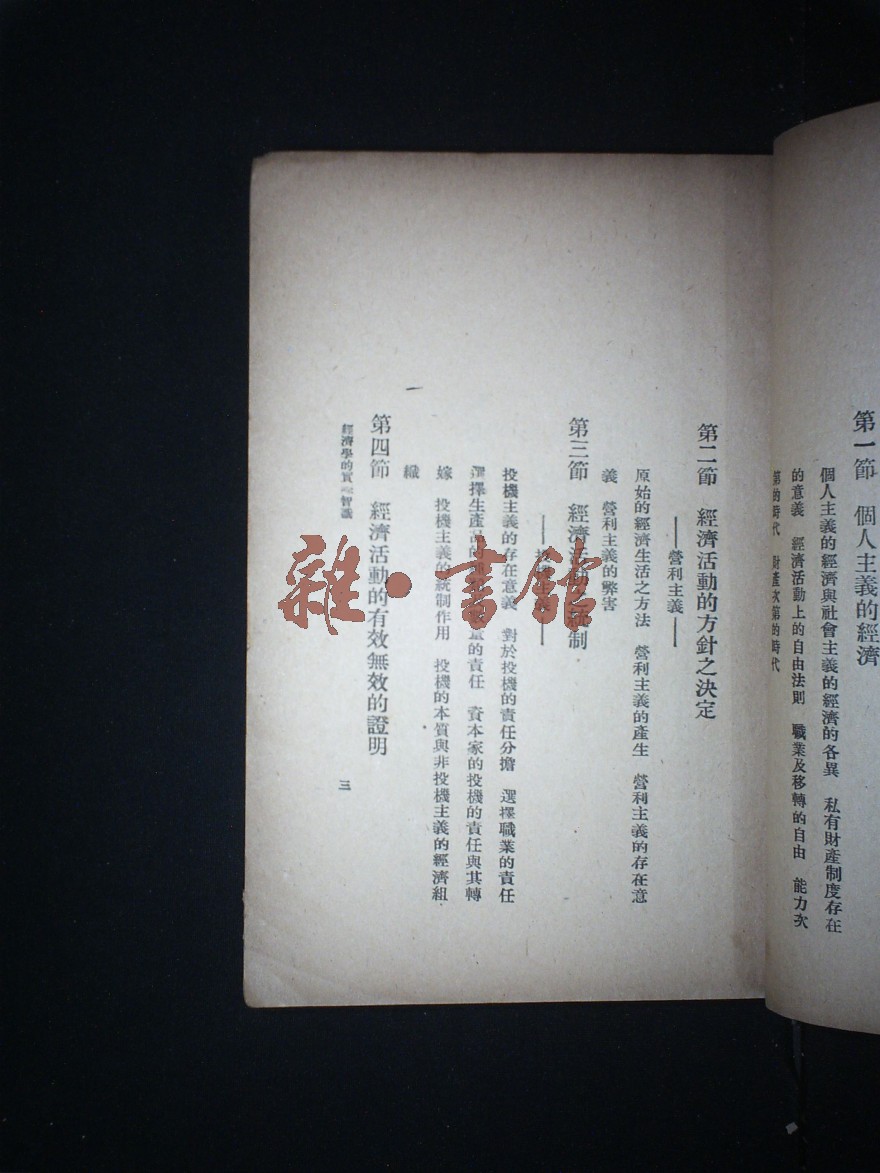 第一節　個人主義的經濟
個人主義的經濟與社會主義的經濟的各異　私有財產制度存在
的意義　經濟活動上的自由法則　職業及移轉的自由　能力次
第的時代　財產次第的時代
第二節　經濟活動的方針之決定
——營利主義——
原始的經濟生活之方法　營利主義的產生　營利主義的存在意
義　營利主義的弊害
第三節　經濟活動之統制
——投機主義——
投機主義的存在意義　對於投機的責任分擔　選擇職業的責任
選擇生產品的　量的責任　資本家的投機的責任與其轉
嫁　投機主義的統制作用　投機的本質與非投機主義的經濟組
織
第四節　經濟活動的有效無效的證明
經濟學的實　智識
三
雜·書館